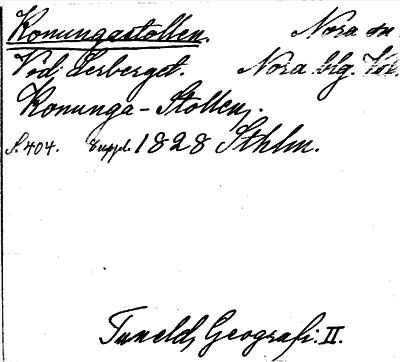 Konungastollen. Nora sn
Vid Lerberget. Nora blg. Vsl.
Konunga-Stollen,
S. 404. Suppl. 1828 Sthlm.
Tuneld, Geografi. II.